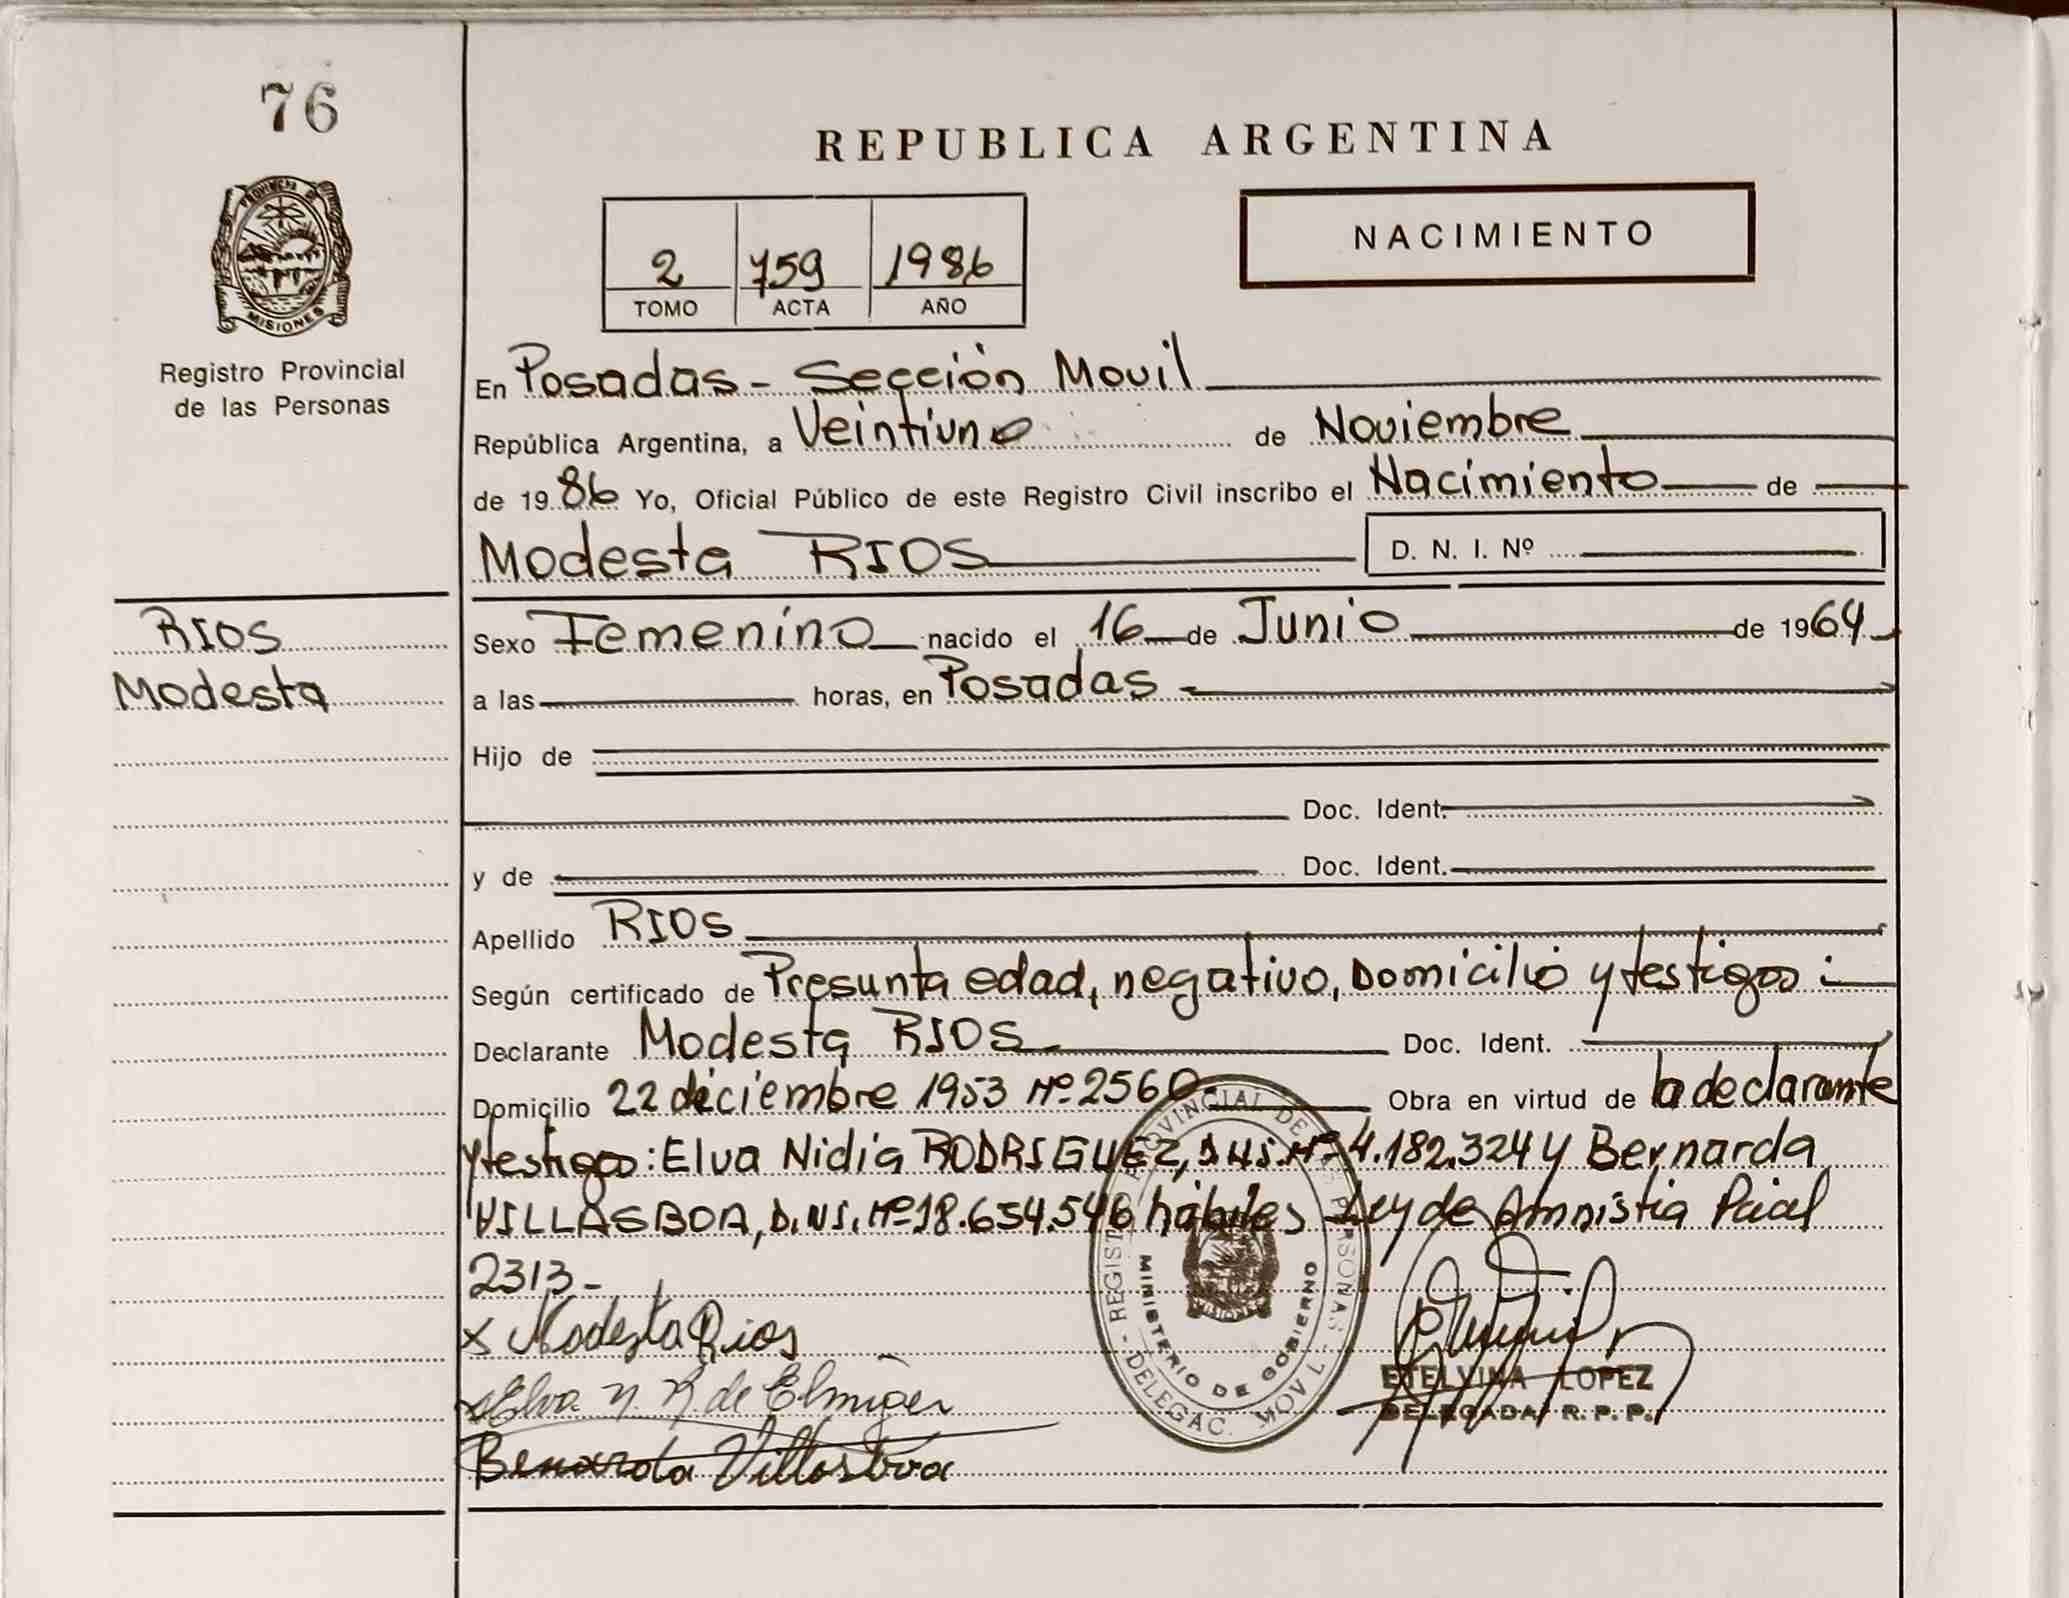 76
REPUBLICA ARGENTINA
PROVINCIA DE MISIONES
Registro Provincial
de las Personas
NACIMIENTO
2 759 1986
TOMO ACTA AÑO
En Posadas - Sección Movil
República Argentina, a Veintiuno de Noviembre
de 1986 Yo, Oficial Público de este Registro Civil inscribo el Nacimiento de
Modesta RIOS D. N. I. Nº
RIOS
Modesta
Sexo Femenino nacido el 16 de Junio de 1964
a las horas, en Posadas
Hijo de
Doc. Ident.
y de Doc. Ident.
Apellido RIOS
Según certificado de Presunta edad, negativo, Domicilio y testigos :
Declarante Modesta RIOS Doc. Ident.
Domicilio 22 diciembre 1953 Nº 2560 Obra en virtud de la declarante
y testigos: Elva Nidia RODRIGUEZ, D.N.I. Nº 4.182.324 y Bernarda
VILLASBOA, D.NI. Nº 18.654.546 hábiles Ley de Amnistia
2313.-
x Modesta Rios
Elva N. R. de Elmiger
Bernarda Villasboa
REGISTRO PROVINCIAL DE LAS PERSONAS - DELEGAC. MOVIL -
MINISTERIO DE GOBIERNO
MISIONES
ETELVINA LOPEZ
DELEGADA R. P. P.